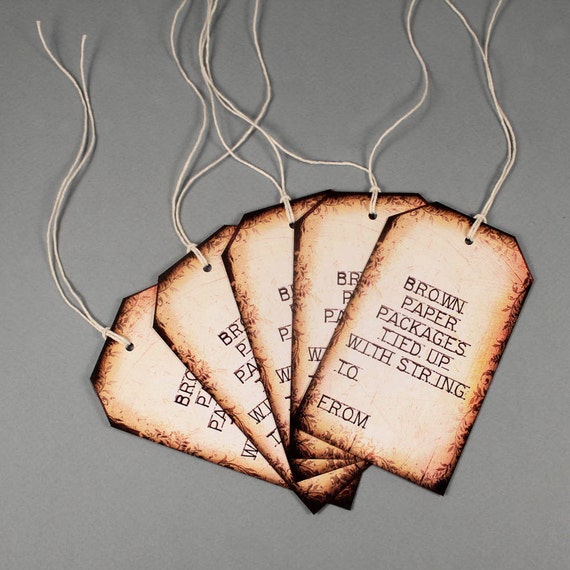 BROWN
PAPER
PACKAGES
TIED UP
WITH STRING
TO
FROM